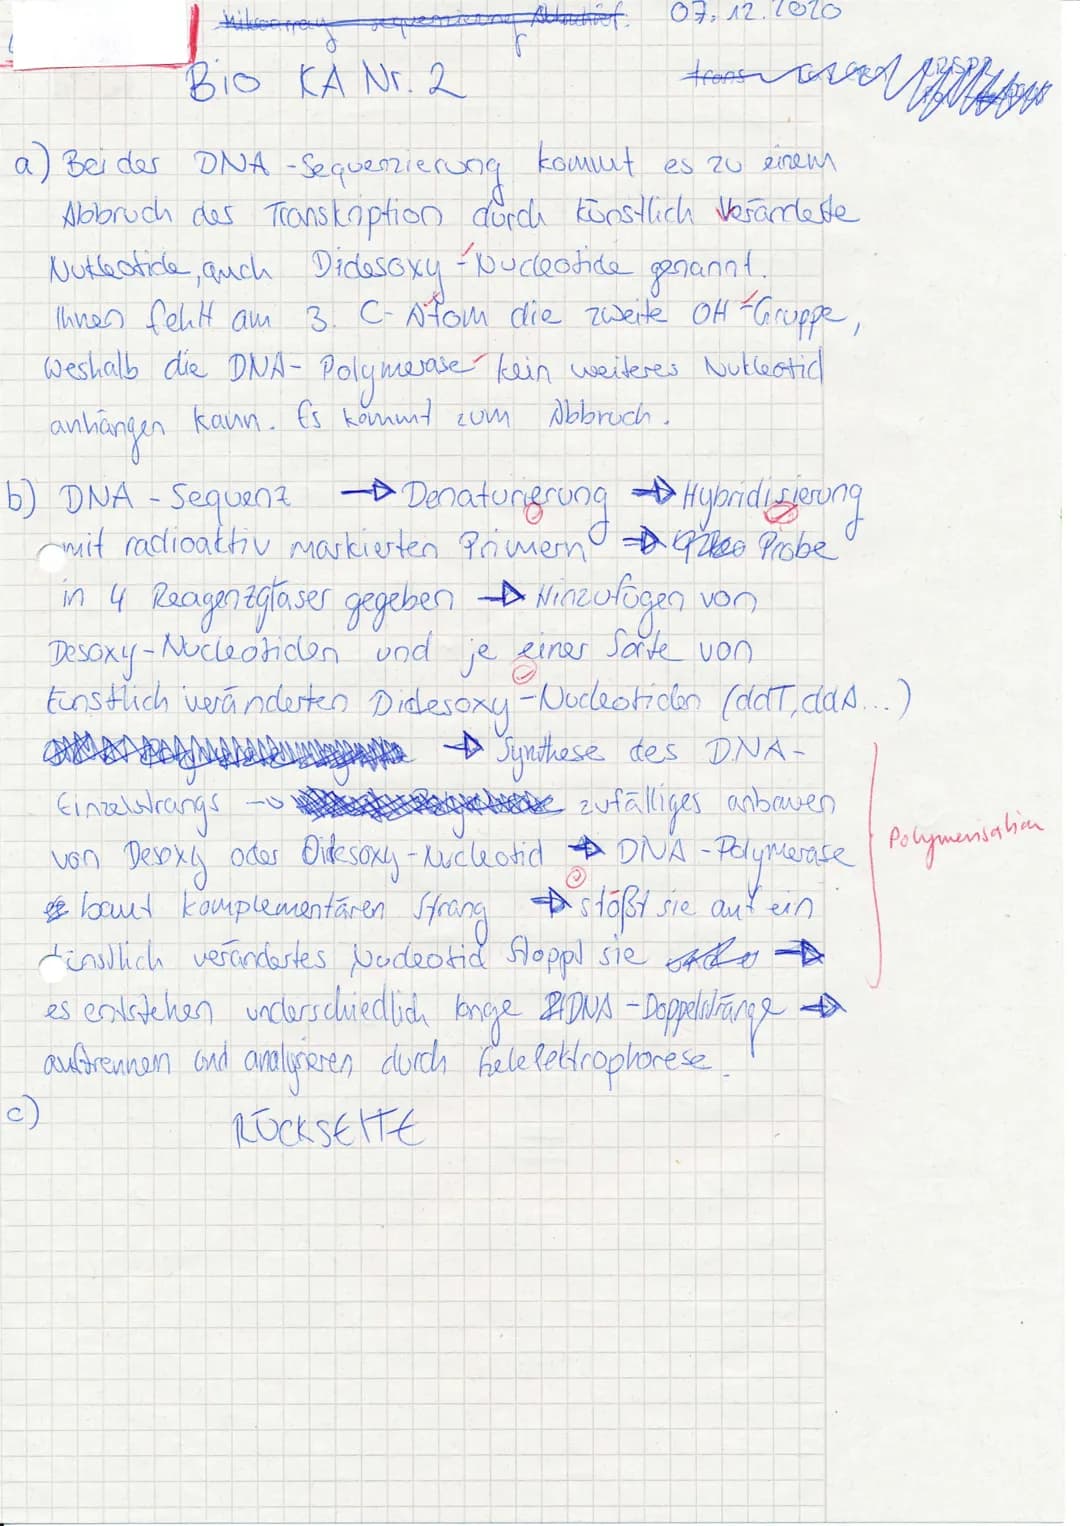 Mikroarray sequenzierung 07.12.2020
Bio KA Nr. 2
trans
a) Bei der DNA-Sequenzierung kommt es zu einem
Abbruch der Transkription durch künstlich veränderte
Nukleotide, auch Didesoxy-Nucleotide genannt.
Ihnen fehlt am 3. C-Atom die zweite OH-Gruppe,
weshalb die DNA-Polymerase kein weiteres Nukleotid
anhängen kann. Es kommt zum Abbruch.
b) DNA-Sequenz → Denaturierung → Hybridisierung
mit radioaktiv markierten Primern → Probe
in 4 Reagenzgläser gegeben → Hinzufügen von
Desoxy-Nucleotiden und je einer Sorte von
künstlich veränderten Didesoxy-Nucleotiden (ddT, ddA...)
→ Synthese des DNA-
Einzelstrangs → zufälliges anbauen
von Desoxy oder Didesoxy-Nucleotid → DNA-Polymerase
Polymerisation
baut komplementären Strang → stößt sie auf ein
künstlich verändertes Nucleotid stoppt sie →
es entstehen underschiedlich lange DNA-Doppelstränge →
auftrennen und analysieren durch Gelelektrophorese.
c) RÜCKSEITE